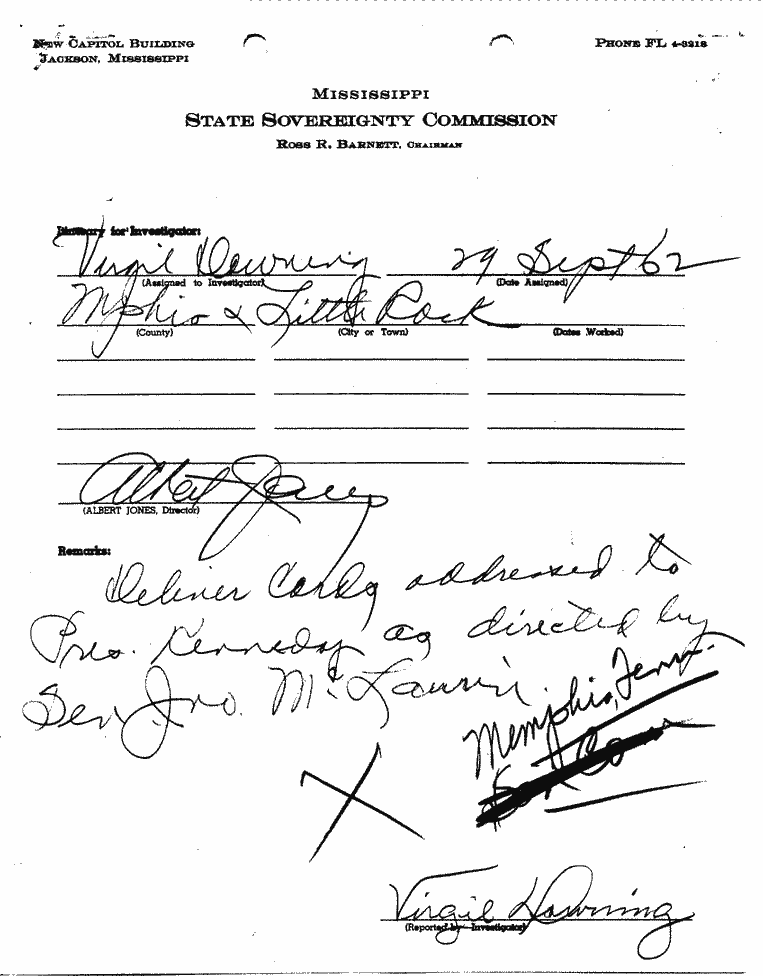 NEW CAPITOL BUILDING
JACKSON, MISSISSIPPI
PHONE FL 4-3218
MISSISSIPPI
STATE SOVEREIGNTY COMMISSION
ROSS R. BARNETT, CHAIRMAN
Itinerary for Investigator:
Virgil Downing 29 Sept 62
(Assigned to Investigator) (Date Assigned)
Mphis & Little Rock
(County) (City or Town) (Dates Worked)
Albert Jones
(ALBERT JONES, Director)
Remarks:
Deliver Cards addressed to
Pres. Kennedy as directed by
Sen Jno. McLaurin
Memphis, Tenn.
Virgil Downing
(Reported by Investigator)